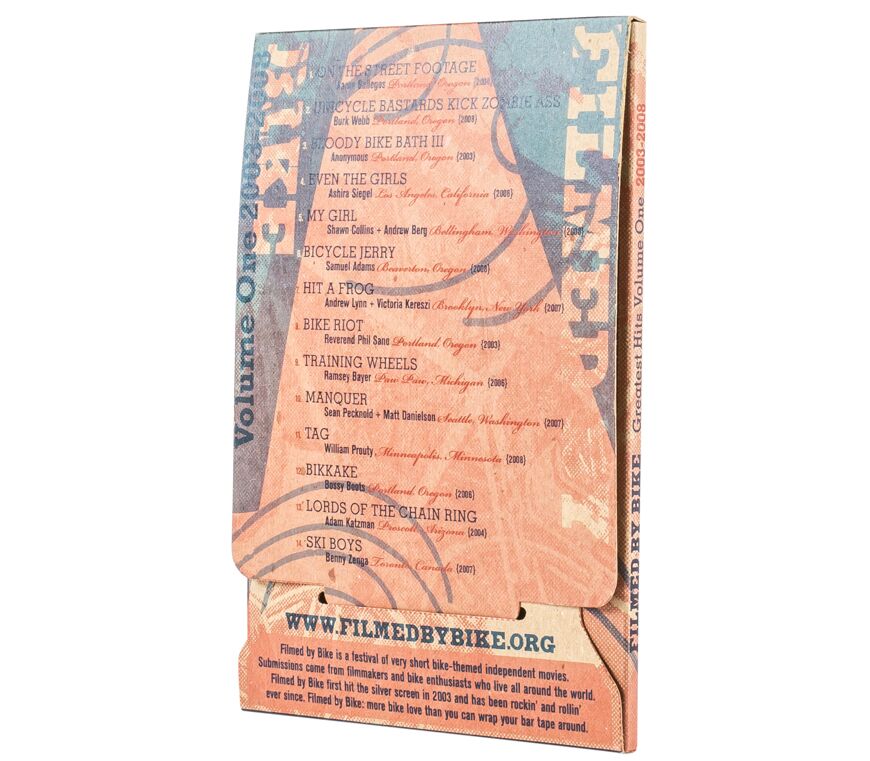 1. ON THE STREET FOOTAGE
Aaron Gallegos Portland, Oregon {2004}
2. UNICYCLE BASTARDS KICK ZOMBIE ASS
Burk Webb Portland, Oregon {2008}
3. BLOODY BIKE BATH III
Anonymous Portland, Oregon {2003}
4. EVEN THE GIRLS
Ashira Siegel Los Angeles, California {2006}
5. MY GIRL
Shawn Collins + Andrew Berg Bellingham, Washington {2008}
6. BICYCLE JERRY
Samuel Adams Beaverton, Oregon {2006}
7. HIT A FROG
Andrew Lynn + Victoria Kereszi Brooklyn, New York {2007}
8. BIKE RIOT
Reverend Phil Sano Portland, Oregon {2003}
9. TRAINING WHEELS
Ramsey Bayer Paw Paw, Michigan {2006}
10. MANQUER
Sean Pecknold + Matt Danielson Seattle, Washington {2007}
11. TAG
William Prouty, Minneapolis, Minnesota {2008}
12. BIKKAKE
Bossy Boots Portland, Oregon {2006}
13. LORDS OF THE CHAIN RING
Adam Katzman Prescott, Arizona {2004}
14. SKI BOYS
Benny Zenga Toronto, Canada {2007}
WWW.FILMEDBYBIKE.ORG
Filmed by Bike is a festival of very short bike-themed independent movies.
Submissions come from filmmakers and bike enthusiasts who live all around the world.
Filmed by Bike first hit the silver screen in 2003 and has been rockin' and rollin'
ever since. Filmed by Bike: more bike love than you can wrap your bar tape around.
Volume One 2003-2008
BIKE
FILMED
FILMED BY BIKE Greatest Hits Volume One 2003-2008